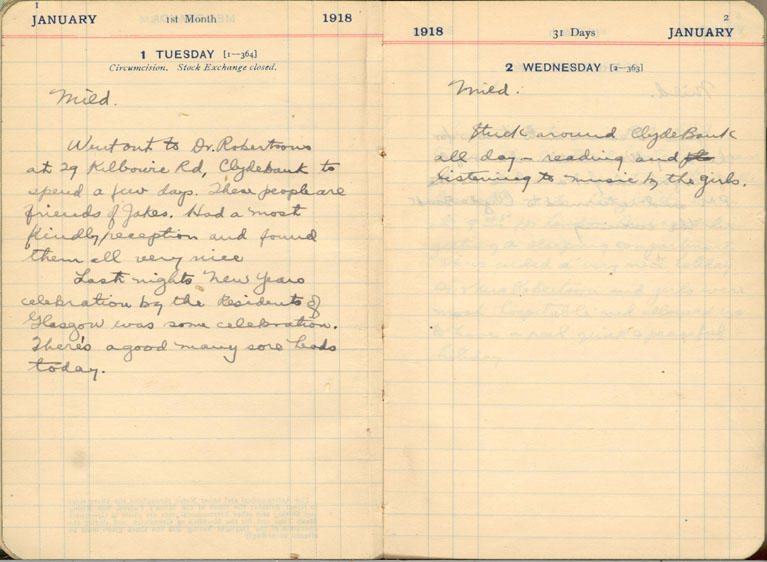 1
JANUARY 1st Month 1918
1 TUESDAY [1—364]
Circumcision. Stock Exchange closed.
Mild.
Went out to Dr. Robertsons
at 29 Kilbowie Rd, Clydebank to
spend a few days. These people are
friends of Jakes. Had a most
kindly reception and found
them all very nice
Last nights New Years
celebration by the Residents of
Glasgow was some celebration.
There's a good many sore heads
today.
2
1918 31 Days JANUARY
2 WEDNESDAY [2—363]
Mild.
Stuck around ClydeBank
all day – reading and
listening to music by the girls.